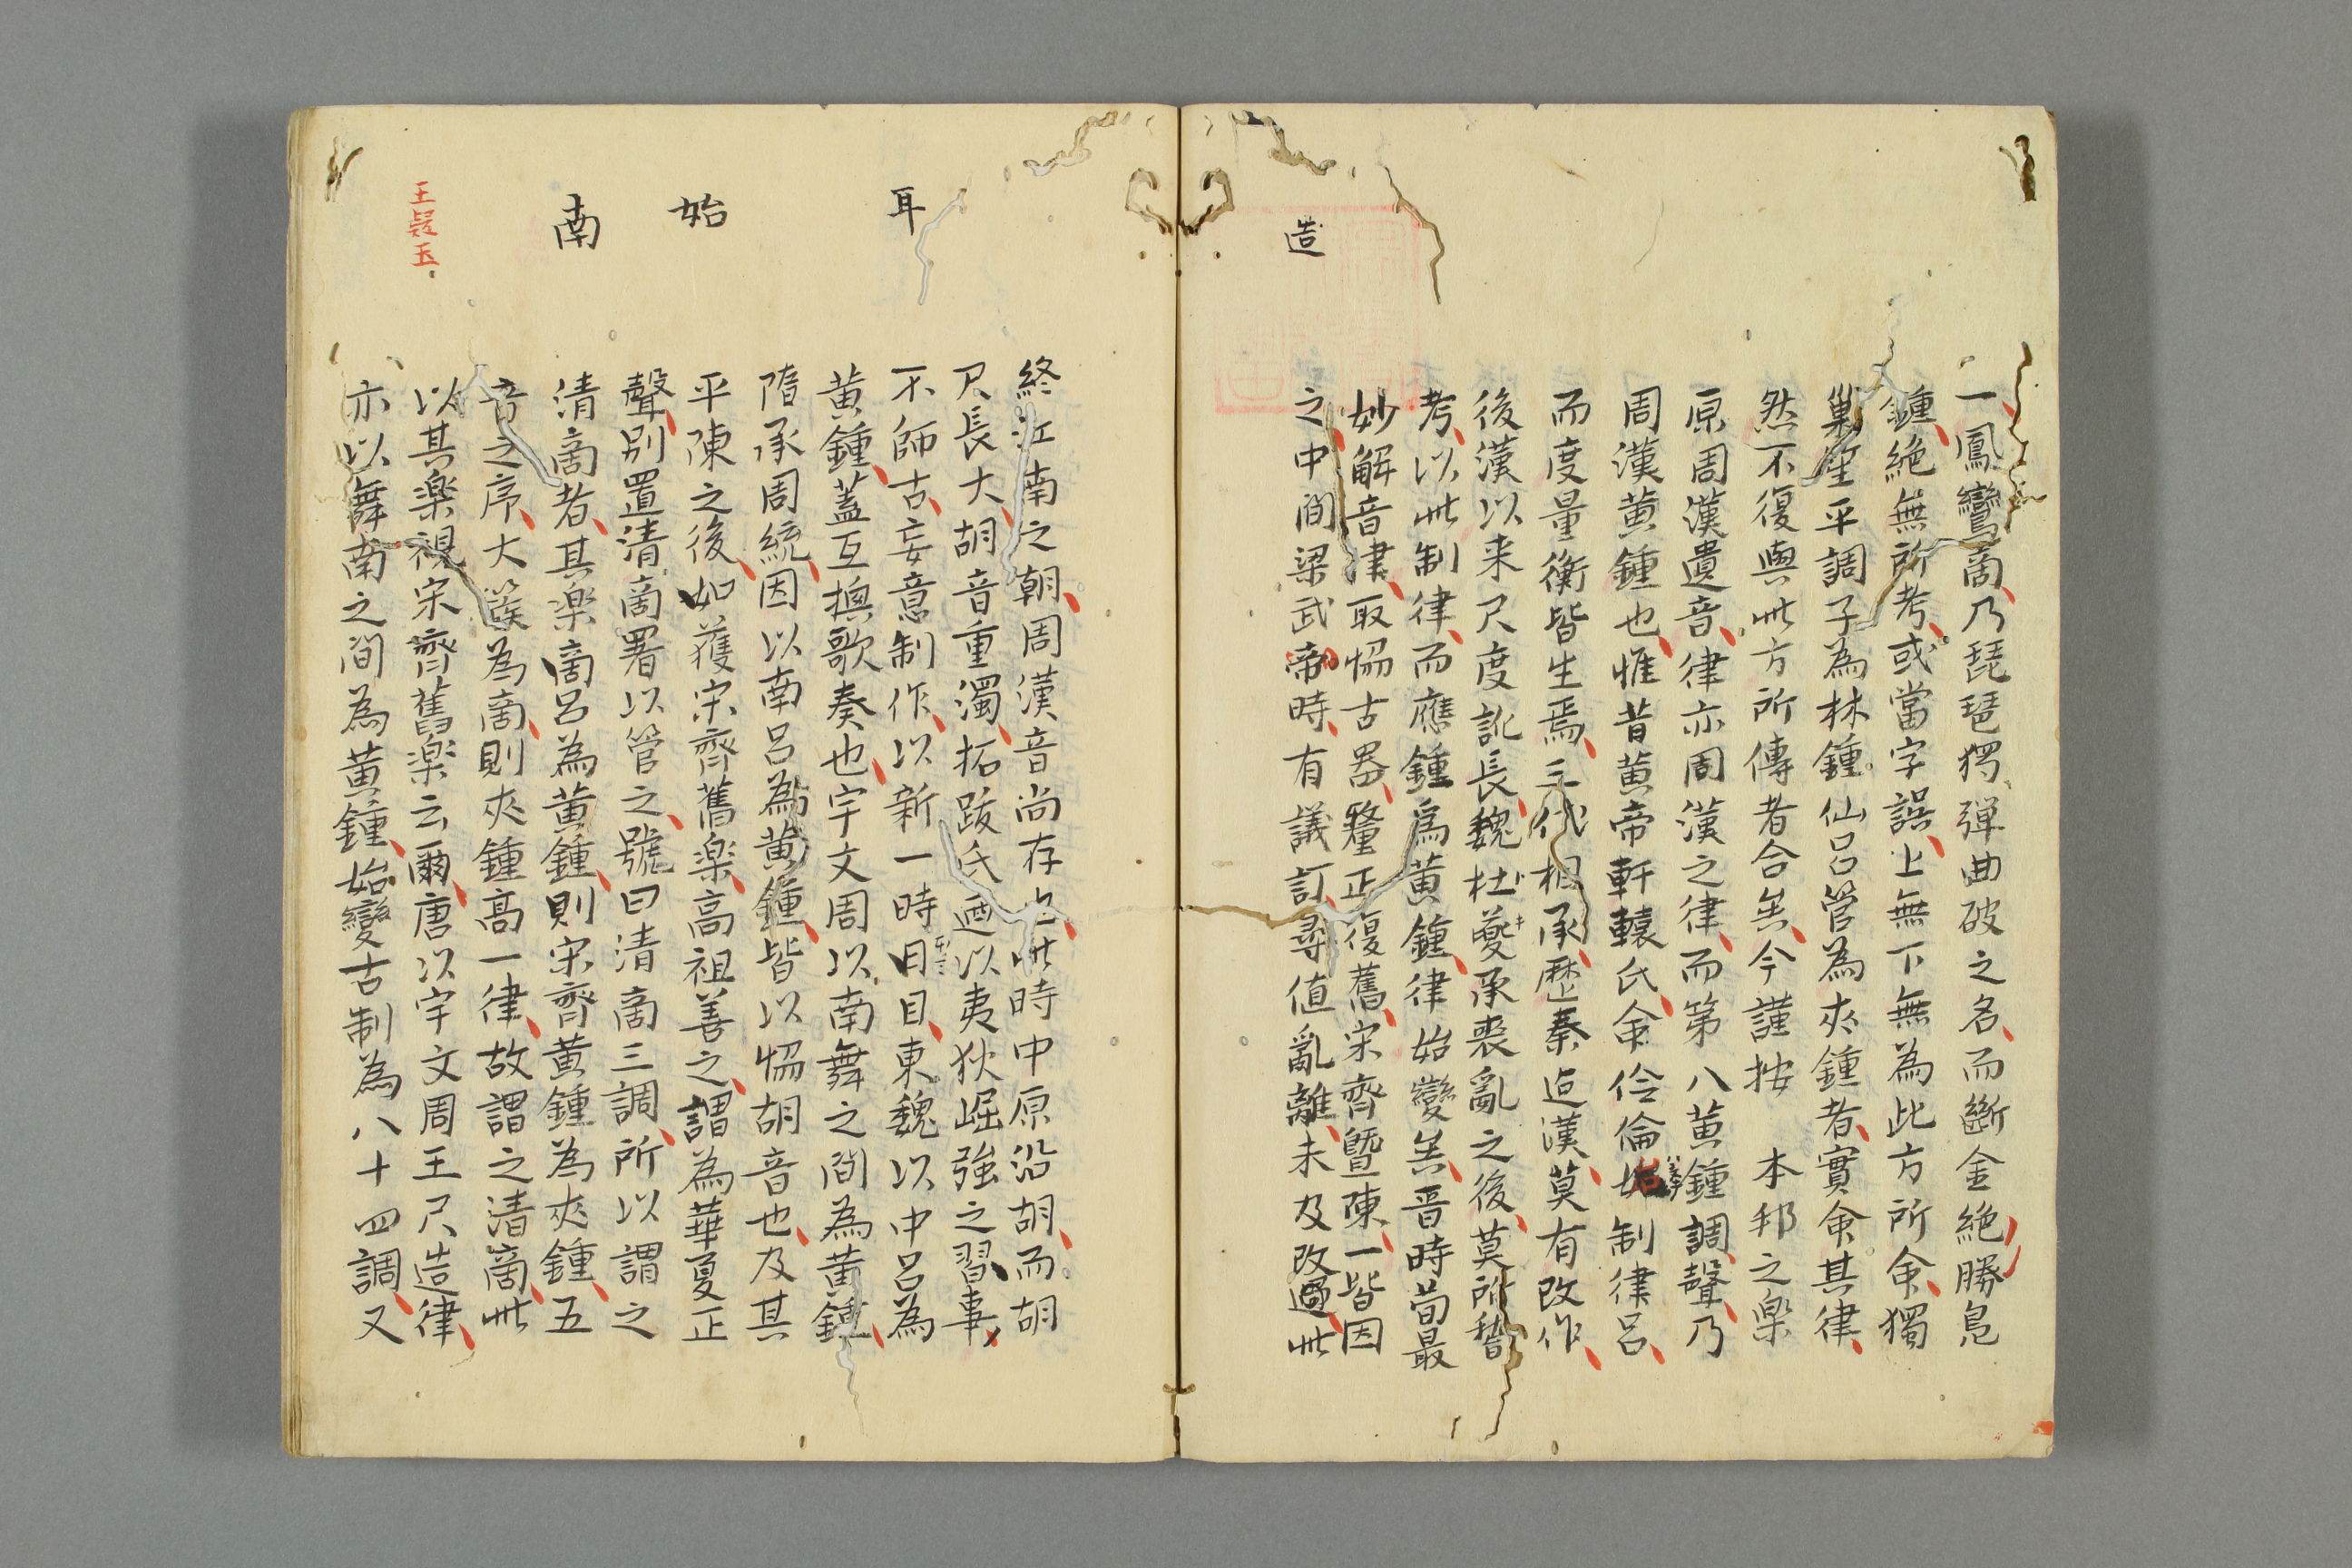 造
一鳳鸞啇乃琵琶獨弾曲破之名而斷金絶勝息
鍾絶無所考或當字誤上無下無為此方所命獨
巢笙平調子為林鍾仙呂管為夾鍾者實命其律
然不復與此方所傳者合矣今謹按 本邦之楽
原周漢遺音律亦周漢之律而第八黄鍾調聲乃
周漢黄鍾也惟昔黄帝軒轅氏命伶倫始制律呂
而度量衡皆生焉三代相承歷秦迨漢莫有改作
後漢以来尺度訛長魏杜夔承喪亂之後莫所稽
考以此制律而應鍾爲黄鍾律始變矣晋時荀最
妙解音律取恊古器釐正復舊宋齊曁陳一皆因
之中間梁武帝時有議訂尋値亂離未及改過此
耳
始
南
王疑玉
終江南之朝周漢音尚存此時中原沿胡而胡
尺長大胡音重濁拓跋氏迺以夷狄崛強之習事
不師古妄意制作以新一時目東魏以中呂為
黄鍾蓋互摸歌奏也宇文周以南舞之間為黄鍾
隋承周統因以南呂為黄鍾皆以恊胡音也及其
平陳之後如獲宋齊舊楽高祖善之謂為華夏正
聲別置清啇署以管之號曰清啇三調所以謂之
清啇者其楽啇呂為黄鍾則宋齊黄鍾為夾鍾五
音之序大簇為啇則夾鍾高一律故謂之清啇此
以其楽視宋齊舊楽云爾唐以宇文周王尺造律
亦以舞南之間為黄鍾始變古制為八十四調又